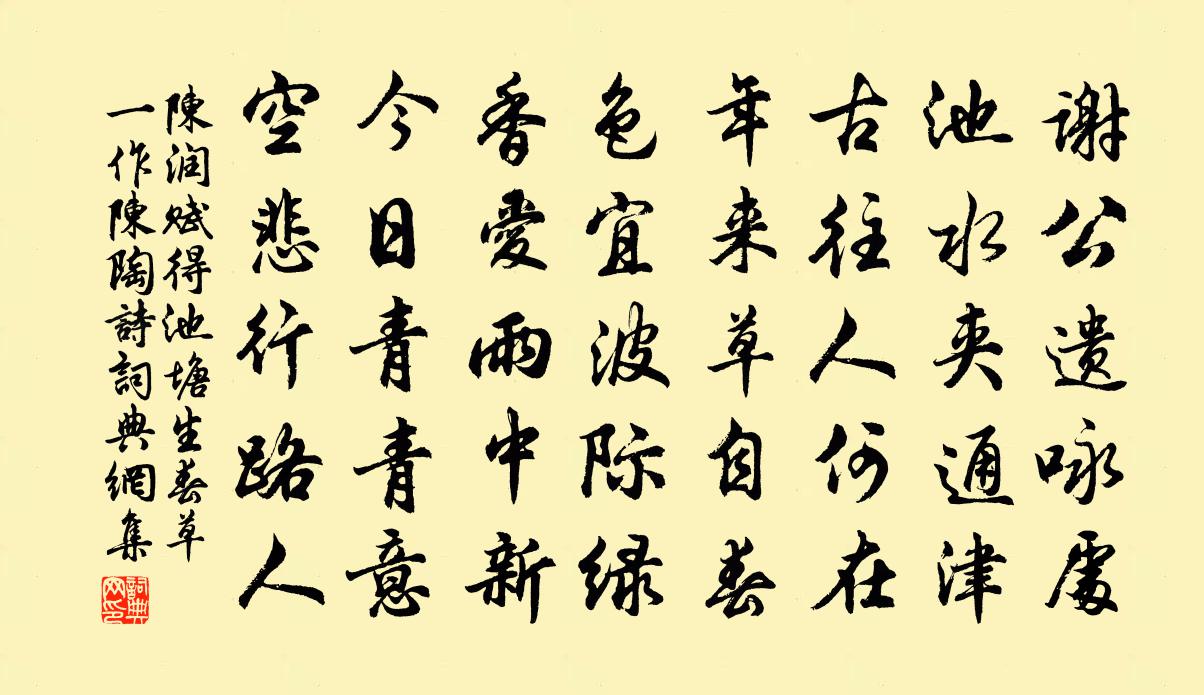 谢公遗咏處
池水夹通津
古往人何在
年来草自春
色宜波际绿
香愛雨中新
今日青青意
空悲行路人
陳润赋得池塘生春草
一作陳陶詩詞典網集
詞典
网印